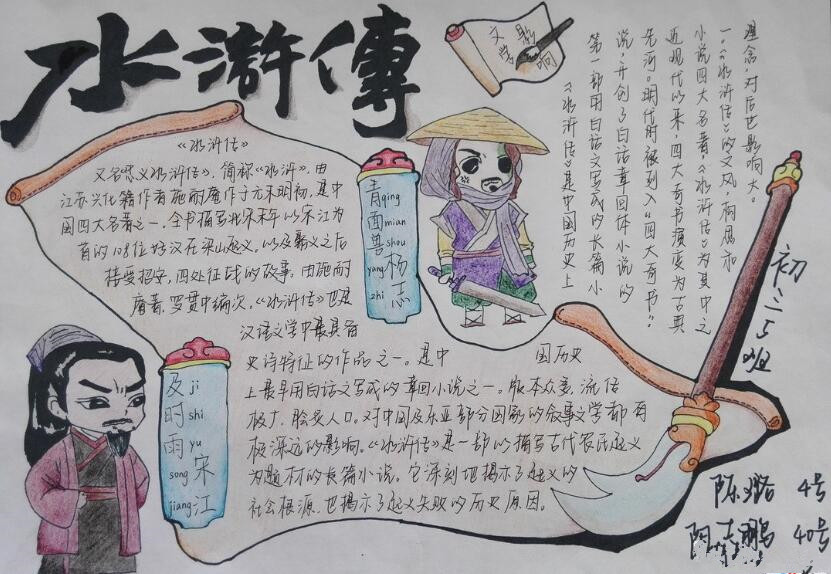 水滸傳
《水浒传》
又名《忠义水浒传》，简称《水浒》，由
江苏兴化籍作者施耐庵作于元末明初，是中
国四大名著之一。全书描写北宋末年以宋江为
首的108位好汉在梁山起义，以及聚义之后
接受招安，四处征战的故事。由施耐
庵著，罗贯中编次。《水浒传》也是
汉语文学中最具备
史诗特征的作品之一。是中国历史
上最早用白话文写成的章回小说之一。版本众多，流传
极广，脍炙人口。对中国及东亚部分国家的叙事文学都有
极深远的影响。《水浒传》是一部以描写古代农民起义
为题材的长篇小说。它深刻地揭示了起义的
社会根源，也揭示了起义失败的历史原因。
青qing
面mian
兽shou
yang杨
zhi志
及ji
时shi
雨yu
song宋
jiang江
文学
影响
《水浒传》是中国历史上
第一部用白话文写成的长篇小
说，开创了白话章回体小说的
先河。明代时被列入"四大奇书"；
近现代以来，四大奇书演变为古典
小说四大名著，《水浒传》为其中之
一。《水浒传》的文风、布局和
理念，对后世影响大。
初二5班
陈璐 4号
志鹏 40号